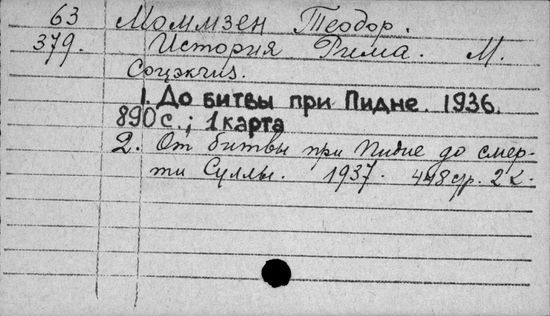 63 Моммзен Теодор.
379. История Рима. М.
Соцэкгиз.
1. До битвы при Пидне. 1936.
890 с.; 1 карта
2. От битвы при Пидне до смер-
ти Суллы. 1937. 448 стр. 2 к.